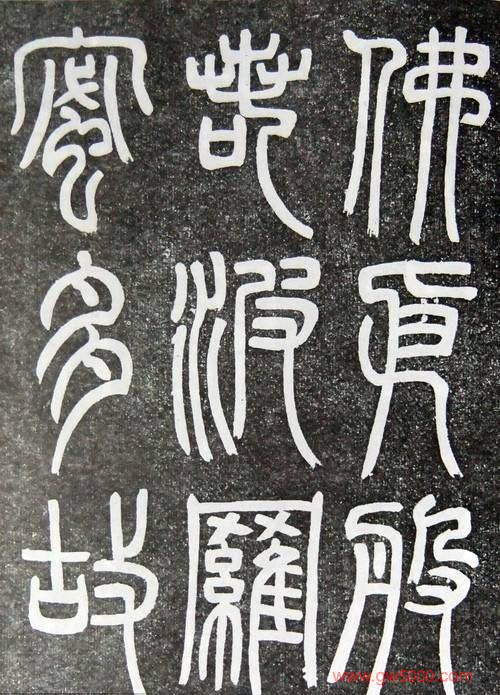 佛依般
若波羅
蜜多故
www.gw5000.com